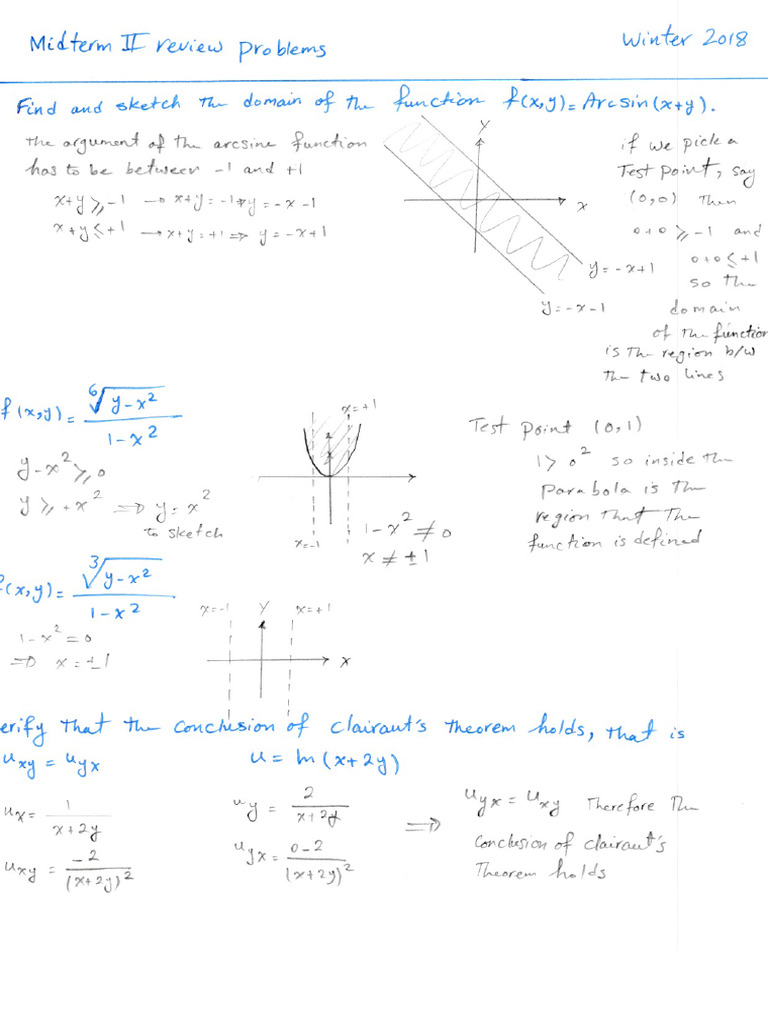 Midterm II review problems
Winter 2018
Find and sketch the domain of the function f(x,y)= Arcsin(x+y).
the argument of the arcsine function
has to be between -1 and +1
x+y ≥ -1 → x+y = -1 ⇒ y = -x -1
x+y ≤ +1 → x+y = +1 ⇒ y = -x+1
y
x
y = -x+1
y = -x-1
if we pick a
Test point, say
(0,0) Then
0+0 ≥ -1 and
0+0 ≤ +1
so the
domain
of the function
is the region b/w
the two lines
f(x,y) = ⁶√(y-x²) / (1-x²)
y-x² ≥ 0
y ≥ +x² ⇒ y = x²
to sketch
x=+1
x=-1
1-x² ≠ 0
x ≠ ±1
Test point (0,1)
1 > 0² so inside the
parabola is the
region that the
function is defined
f(x,y) = ³√(y-x²) / (1-x²)
1-x² = 0
⇒ x = ±1
x=-1 y x=+1
x
erify that the conclusion of clairaut's theorem holds, that is
u_xy = u_yx u = ln(x+2y)
u_x = 1 / (x+2y)
u_xy = -2 / (x+2y)²
u_y = 2 / (x+2y)
u_yx = (0-2) / (x+2y)²
⇒ u_yx = u_xy Therefore the
conclusion of clairaut's
Theorem holds